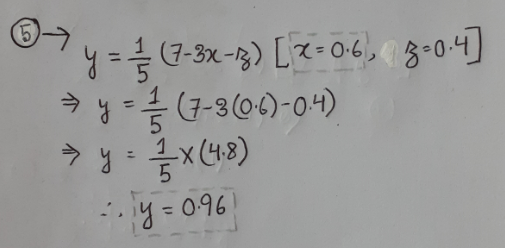 ⑤ → y = 1/5 (7-3x-z) [x = 0.6, z = 0.4]
⇒ y = 1/5 (7-3(0.6)-0.4)
⇒ y = 1/5 × (4.8)
∴ y = 0.96